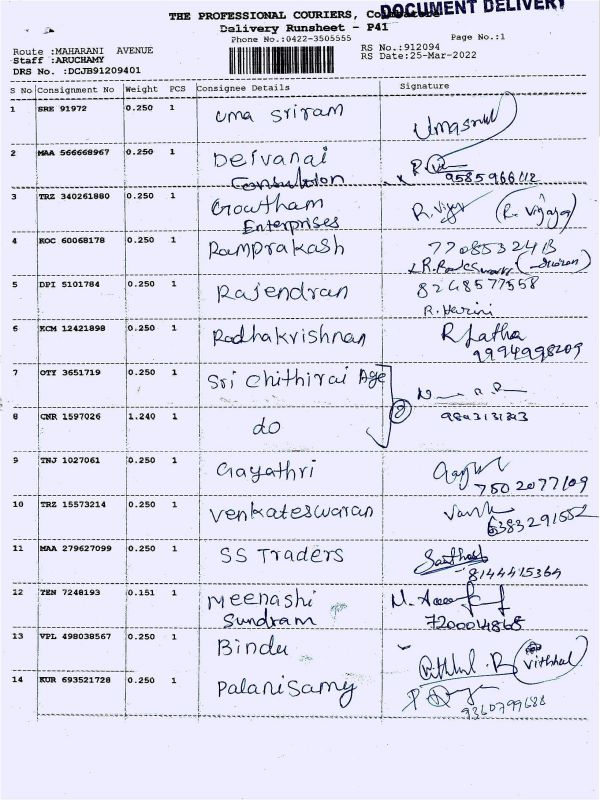 DOCUMENT DELIVERY
THE PROFESSIONAL COURIERS,
Delivery Runsheet - P41
Phone No.:0422-3505555
Page No.:1
Route :MAHARANI AVENUE
RS No.:912094
Staff :ARUCHAMY
RS Date:25-Mar-2022
DRS No. :DCJB91209401
S No Consignment No Weight PCS Consignee Details Signature
1 SRE 91972 0.250 1 uma sriram Umasri
2 MAA 566668967 0.250 1 Deivanai
3 TRZ 340261880 0.250 1 Gowtham R. Vijay (R. Vijaya)
Enterprises
4 ROC 60068178 0.250 1 Ramprakash
5 DPI 5101784 0.250 1 Rajendran 8248577558
R. Harini
6 KCM 12421898 0.250 1 Radhakrishnan R Latha
9994998209
7 OTY 3651719 0.250 1 Sri Chithirai Age
8 CNR 1597026 1.240 1 do
9 TNJ 1027061 0.250 1 Gayathri
7502077109
10 TRZ 15573214 0.250 1 Venkateswaran
6383291552
11 MAA 279627099 0.250 1 SS Traders
8144415369
12 TEN 7248193 0.151 1 Meenashi
Sundram 7200041868
13 VPL 498038567 0.250 1 Bindu
Vithhal . B (Vithhal)
14 KUR 693521728 0.250 1 Palanisamy
9360799688